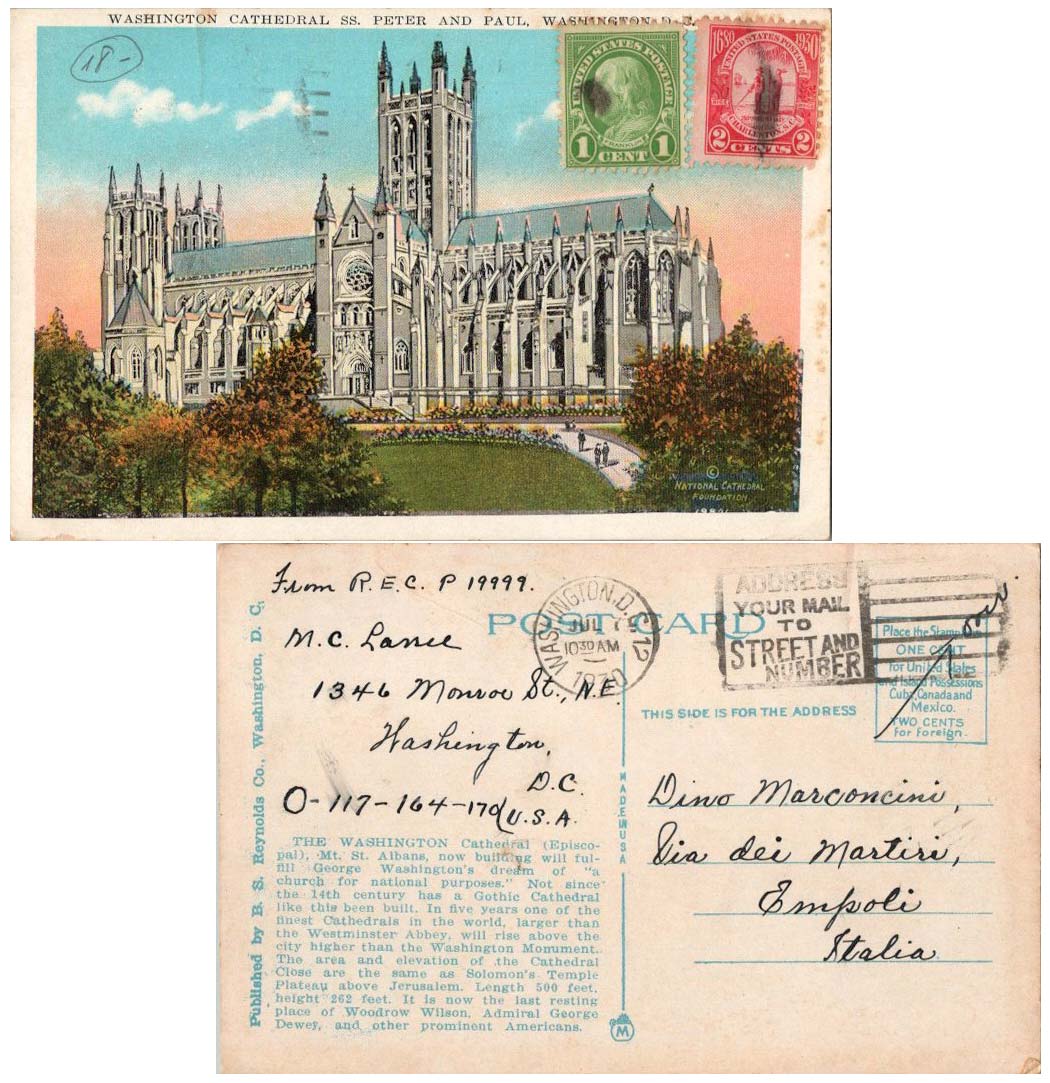 WASHINGTON CATHEDRAL SS. PETER AND PAUL, WASHINGTON D. C.
18-
UNITED STATES POSTAGE
FRANKLIN
1 CENT 1
1680 1930
UNITED STATES POSTAGE
CHARLESTON, S.C.
2 CENTS 2
©
NATIONAL CATHEDRAL
FOUNDATION
From R.E.C. P 19999.
M.C. Lanee
1346 Monroe St., N.E.
Washington,
D.C.
U.S.A.
O-117-164-170
POST CARD
WASHINGTON, D.C.
JUL 7
10 30 AM
1930
2
ADDRESS
YOUR MAIL
TO
STREET AND
NUMBER
Place the Stamp
ONE CENT
for United States
and Island Possessions
Cuba, Canada and
Mexico.
TWO CENTS
for Foreign.
THIS SIDE IS FOR THE ADDRESS
Dino Marconcini,
Via dei Martiri,
Empoli
Italia
MADE IN USA
M
THE WASHINGTON Cathedral (Episco-
pal), Mt. St. Albans, now building will ful-
fill George Washington's dream of "a
church for national purposes." Not since
the 14th century has a Gothic Cathedral
like this been built. In five years one of the
finest Cathedrals in the world, larger than
the Westminster Abbey, will rise above the
city higher than the Washington Monument.
The area and elevation of the Cathedral
Close are the same as Solomon's Temple
Plateau above Jerusalem. Length 500 feet,
height 262 feet. It is now the last resting
place of Woodrow Wilson, Admiral George
Dewey, and other prominent Americans.
Published by B. S. Reynolds Co., Washington, D. C.